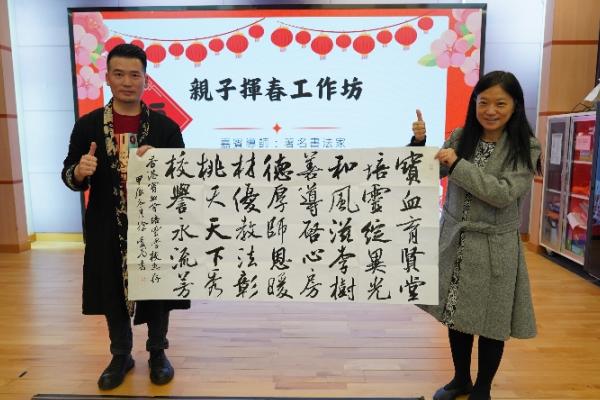 親子揮春工作坊
嘉賓導師：著名書法家
寶血育賢堂
培靈綻異光
和風滋李樹
善導啓心房
德厚師恩暖
材優教法彰
桃夭天下秀
校譽永流芳
香港寶血會培靈學校惠存
甲辰冬月徐書